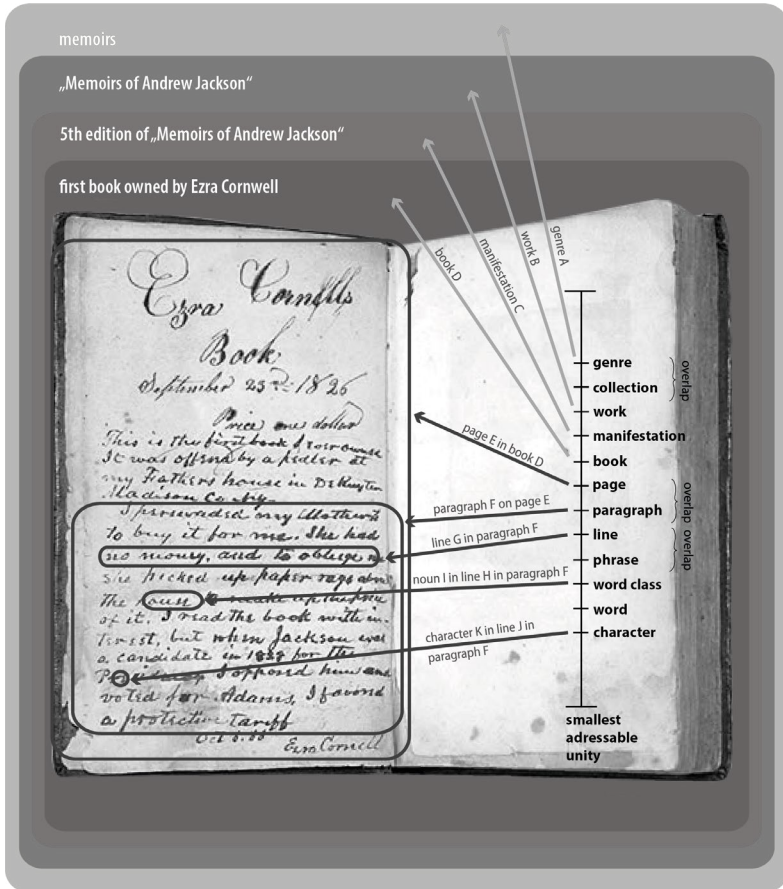 memoirs
„Memoirs of Andrew Jackson“
5th edition of „Memoirs of Andrew Jackson“
first book owned by Ezra Cornwell
Ezra Cornells
Book
September 25th 1826
Price one dollar
This is the first book I ever owned
It was offered by a pedler at
my Fathers house in DeRuyter
Madison Co Ny.
I perswaded my Mother
to buy it for me. She had
no money, and to oblige me
she picked up paper rags
the
of it. I read the book with in-
terest, but when Jackson was
a candidate in 1828 for the
I opposed him and
voted for Adams, I favord
a protective tariff
Oct 6.66
Ezra Cornell
genre A
work B
manifestation C
book D
page E in book D
paragraph F on page E
line G in paragraph F
noun I in line H in paragraph F
character K in line J in
paragraph F
genre
collection
work
manifestation
book
page
paragraph
line
phrase
word class
word
character
overlap
overlap
overlap
smallest
adressable
unity